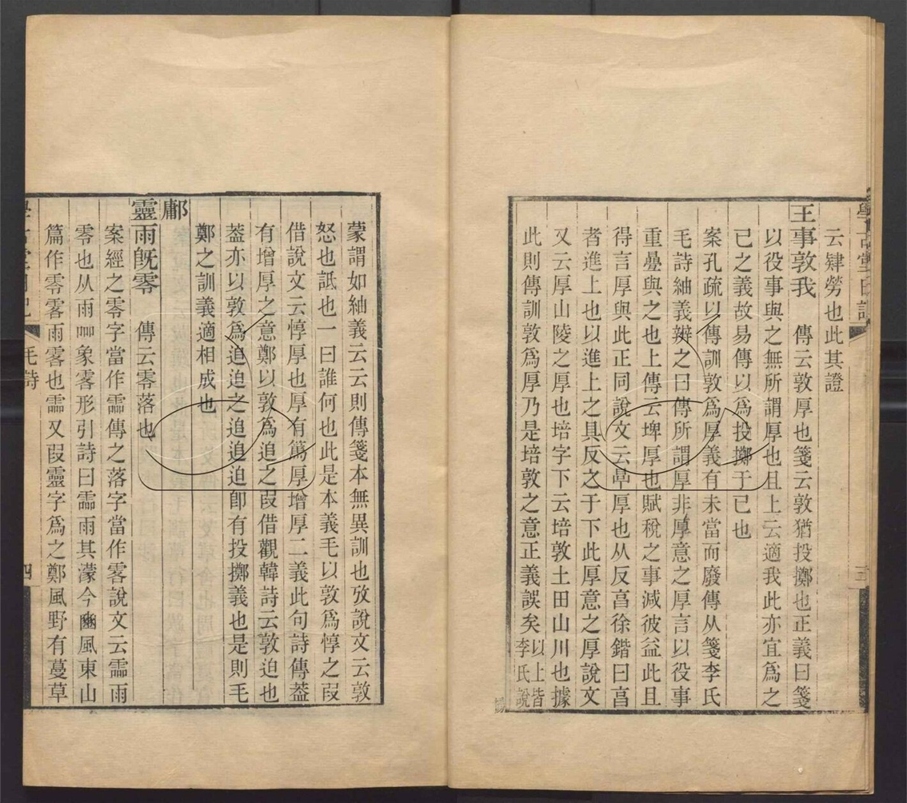 學古堂日記
三
云肄勞也此其證
王事敦我　傳云敦厚也箋云敦猶投擲也正義曰箋
以役事與之無所謂厚也且上云適我此亦宜爲之
己之義故易傳以爲投擲于己也
案孔疏以傳訓敦爲厚義有未當而廢傳从箋李氏
毛詩紬義辨之曰傳所謂厚非厚意之厚言以役事
重疊與之也上傳云埤厚也賦稅之事減彼益此且
得言厚與此正同說文云𣆪厚也从反亯徐鍇曰亯
者進上也以進上之具反之于下此厚意之厚說文
又云厚山陵之厚也培字下云培敦土田山川也據
此則傳訓敦爲厚乃是培敦之意正義誤矣以上皆李氏說
蒙謂如紬義云云則傳箋本無異訓也攷說文云敦
怒也詆也一曰誰何也此是本義毛以敦爲惇之叚
借說文云惇厚也厚有篤厚增厚二義此句詩傳葢
有增厚之意鄭以敦爲追之叚借觀韓詩云敦迫也
葢亦以敦爲追追之追追迫卽有投擲義也是則毛
鄭之訓義適相成也
鄘
靈雨旣零　傳云零落也
案經之零字當作霝傳之落字當作零說文云霝雨
零也从雨𠱠象零形引詩曰霝雨其濛今豳風東山
篇作零零雨零也霝又叚靈字爲之鄭風野有蔓草
學古堂日記
毛詩
四